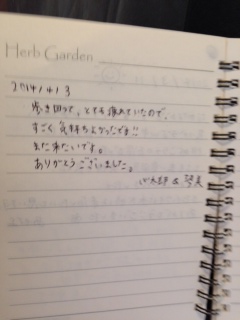 Herb Garden
2014/4/3
歩き回って、とても疲れていたので、
すごく気持ちよかったです!!
また来たいです。
ありがとうございました。